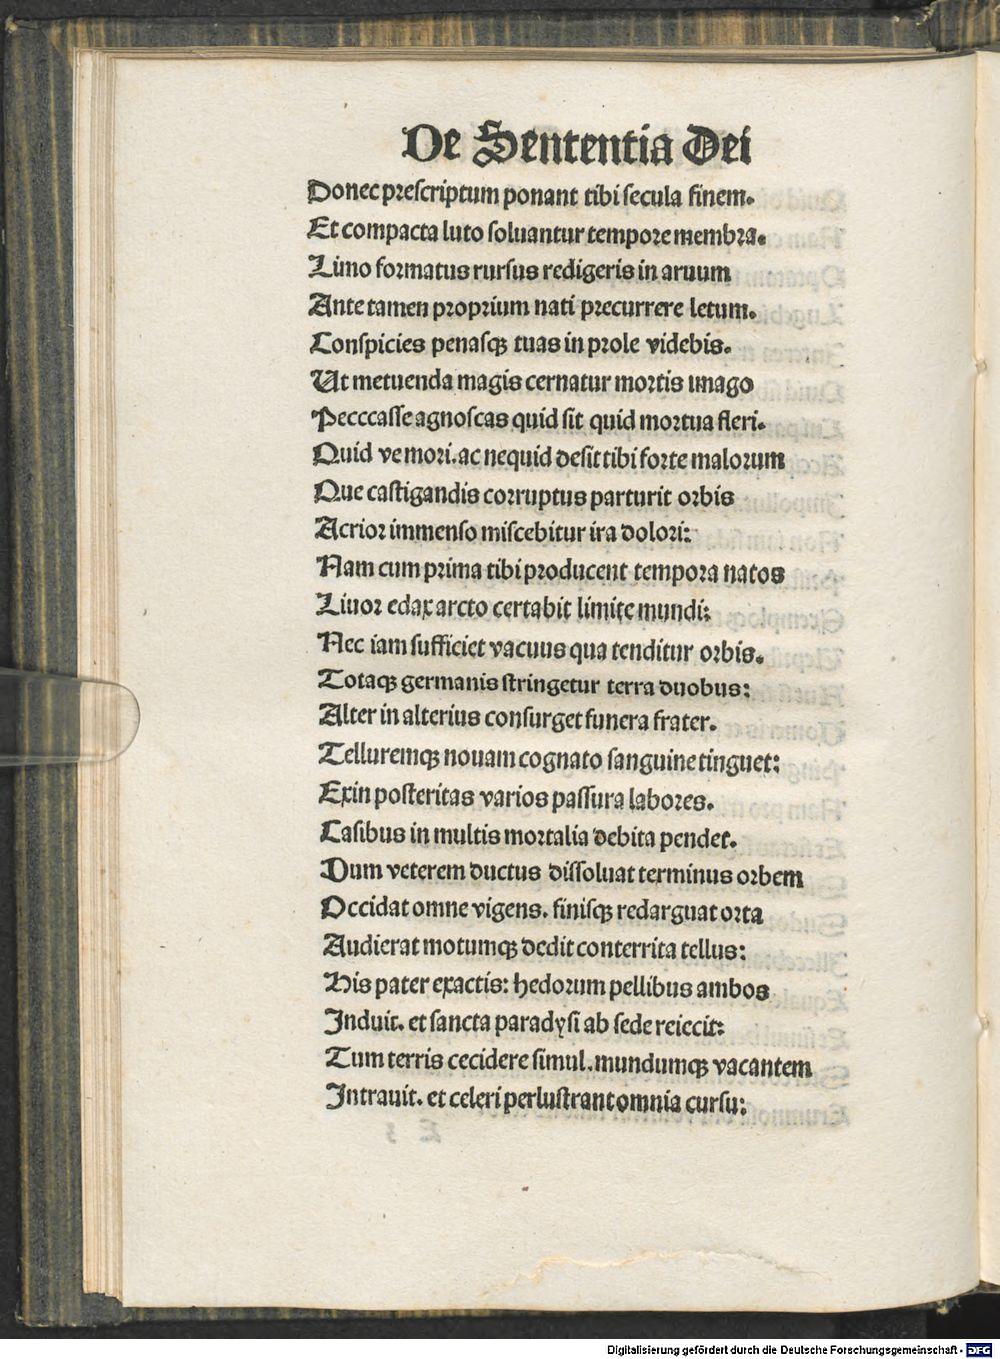 De Sententia Dei
Donec prescriptum ponant tibi secula finem.
Et compacta luto soluantur tempore membra.
Limo formatus rursus redigeris in aruum
Ante tamen proprium nati precurrere letum.
Conspicies penasqꝫ tuas in prole videbis.
Ut metuenda magis cernatur mortis imago
Pecccasse agnoscas quid sit quid mortua fleri.
Quid ve mori. ac nequid desit tibi forte malorum
Que castigandis corruptus parturit orbis
Acrior immenso miscebitur ira dolori:
Nam cum prima tibi producent tempora natos
Liuor edax arcto certabit limite mundi:
Nec iam sufficiet vacuus qua tenditur orbis.
Totaqꝫ germanis stringetur terra duobus:
Alter in alterius consurget funera frater.
Telluremqꝫ nouam cognato sanguine tinguet:
Exin posteritas varios passura labores.
Casibus in multis mortalia debita pendet.
Dum veterem ductus dissoluat terminus orbem
Occidat omne vigens. finisqꝫ redarguat orta
Audierat motumqꝫ dedit conterrita tellus:
His pater exactis: hedorum pellibus ambos
Induit. et sancta paradysi ab sede reiecit:
Tum terris cecidere simul. mundumqꝫ vacantem
Intrauit. et celeri perlustrant omnia cursu:
Digitalisierung gefördert durch die Deutsche Forschungsgemeinschaft - DFG